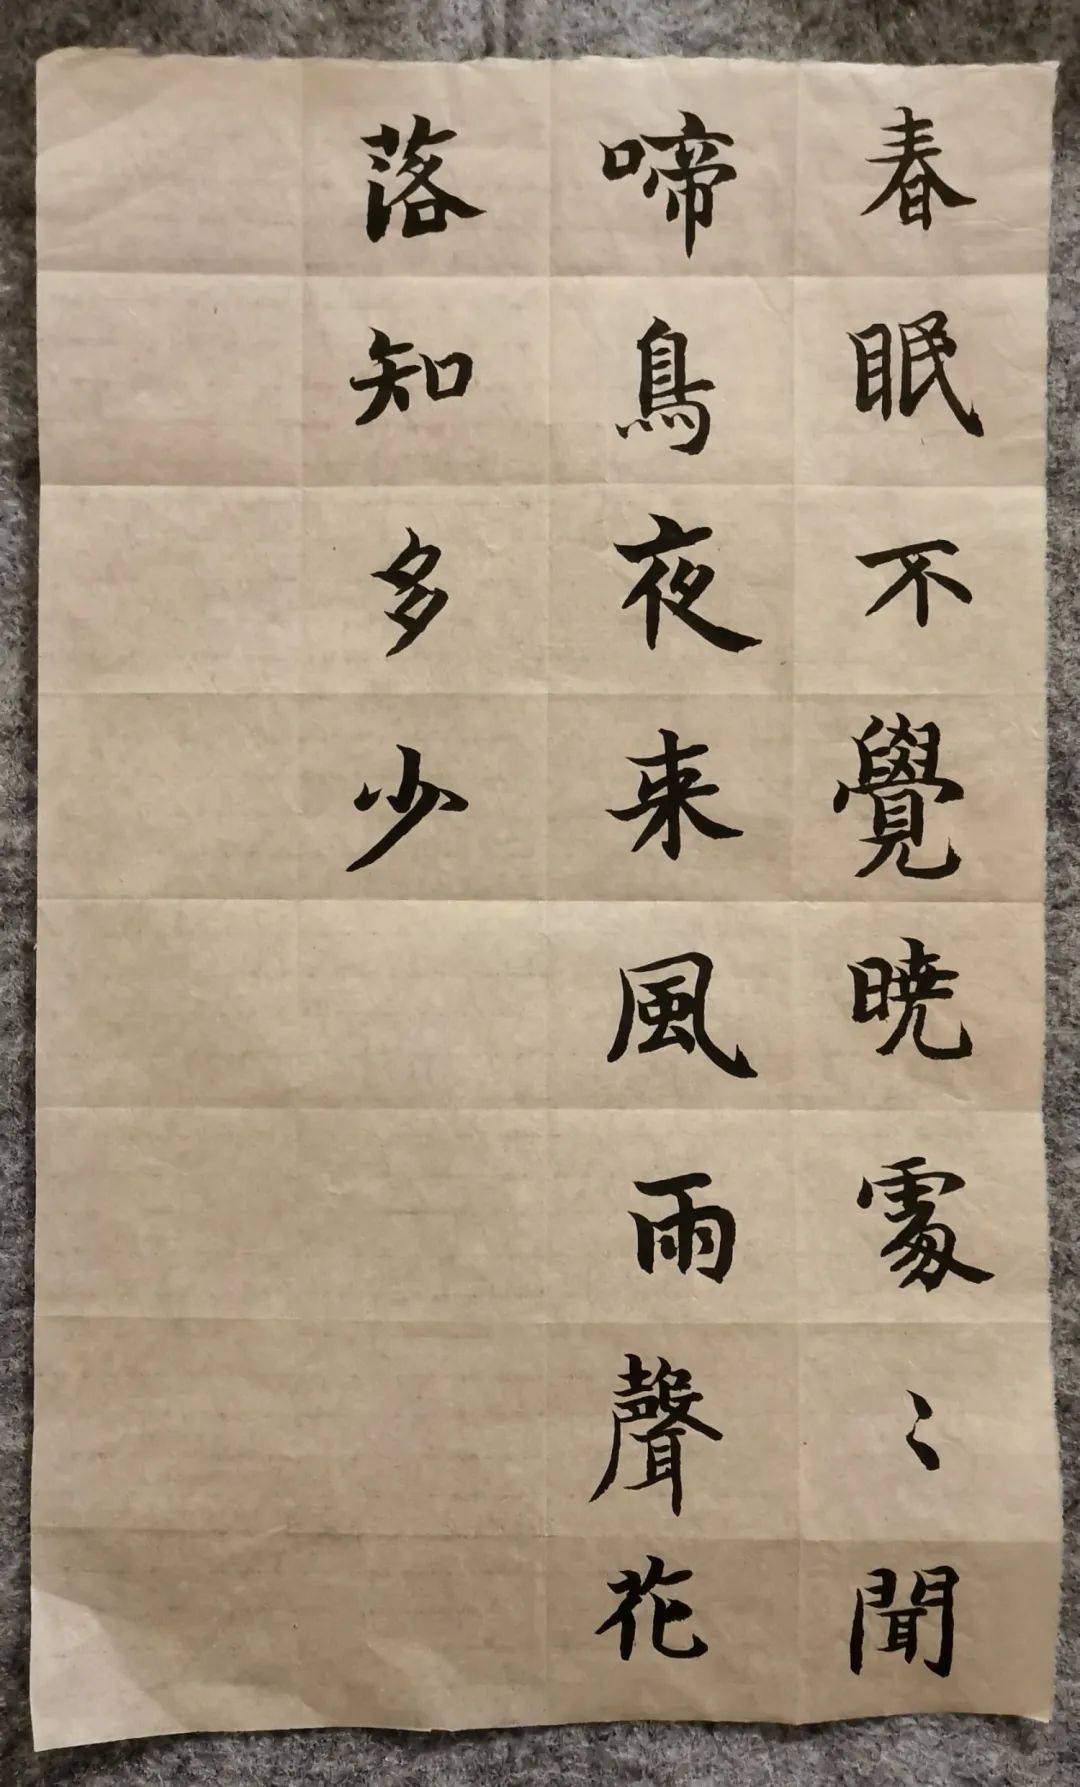 春眠不覺暁處〻聞
啼鳥夜来風雨聲花
落知多少